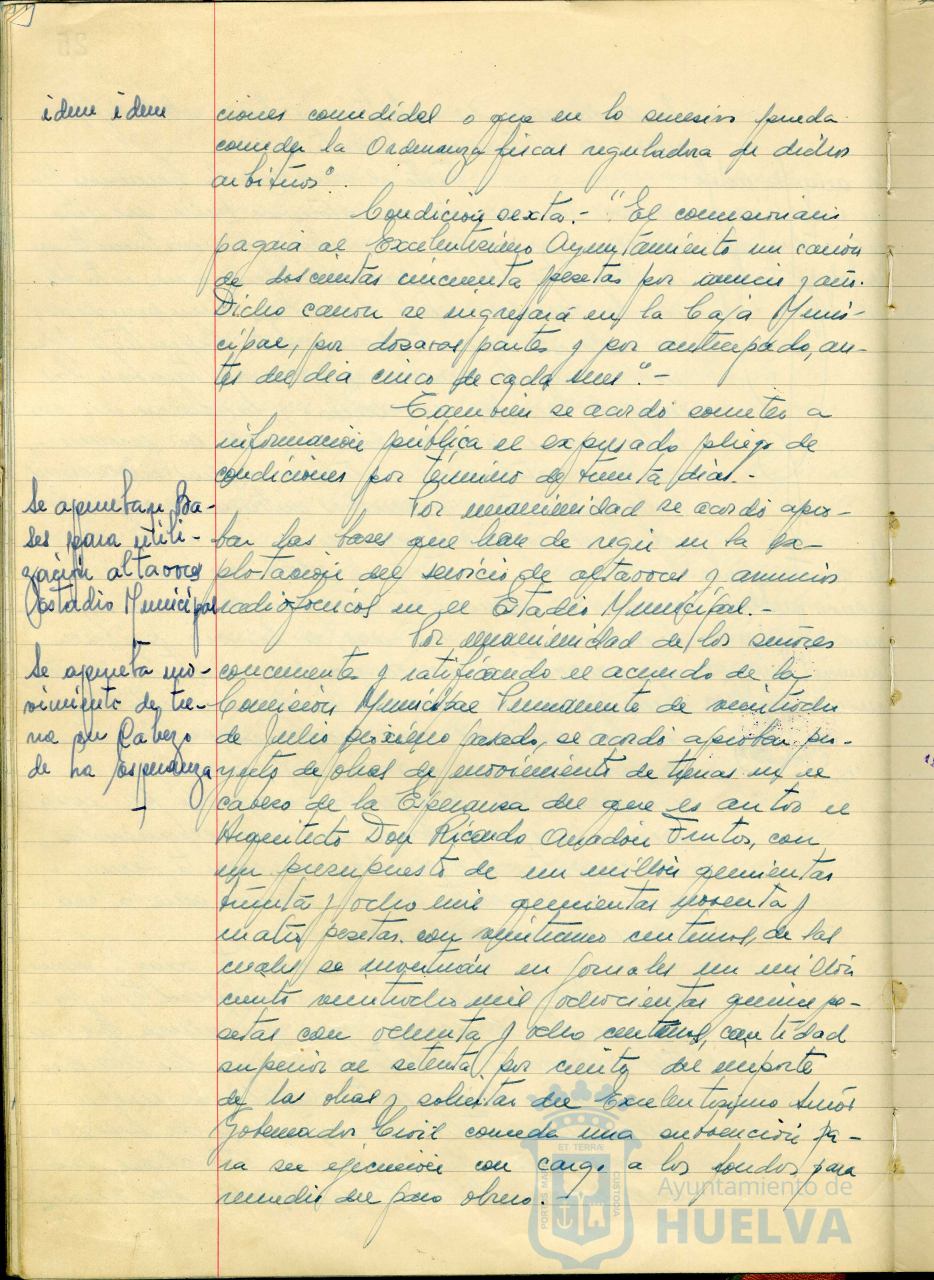 idem idem
ciones concedidas o que en lo sucesivo pueda
conceder la Ordenanza fiscal reguladora de dichos
arbitrios".
Condición sexta.- "El concesionario
pagará al Excelentísimo Ayuntamiento un canón
de doscientas cincuenta pesetas por anuncio y año.
Dicho canon se ingresará en la Caja Muni-
cipal, por dozavas partes y por anticipado, an-
tes del día cinco de cada mes".-
También se acordó someter a
información pública el expresado pliego de
condiciones por término de treinta días.-
Se aprueban Ba-
ses para utili-
zación altavoces
Estadio Municipal
Por unanimidad se acordó apro-
bar las bases que han de regir en la ex-
plotación del servicio de altavoces y anuncios
radiofónicos en el Estadio Municipal.-
Se aprueba mo-
vimiento de tie-
rra en Cabezo
de La Esperanza
Por unanimidad de los señores
concurrentes y ratificando el acuerdo de la
Comisión Municipal Permanente de veintiocho
de Julio próximo pasado, se acordó aprobar pro-
yecto de obras de movimiento de tierras en el
cabezo de la Esperanza del que es autor el
Arquitecto Don Ricardo Anadón Frutos, con
un presupuesto de un millón quinientas
treinta y ocho mil quinientas noventa y
cuatro pesetas con veintiuno centimos, de las
cuales se invertirán en jornales un millón
ciento veintiocho mil ochocientas quince pe-
setas con ochenta y ocho centimos, cantidad
superior al setenta por ciento del importe
de las obras y solicitar del Excelentísimo Señor
Gobernador Civil conceda una subvención pa-
ra su ejecución con cargo a los fondos para
remedio del paro obrero.-
PORTUS MARIS ET TERRAE CUSTODIA
Ayuntamiento de
HUELVA